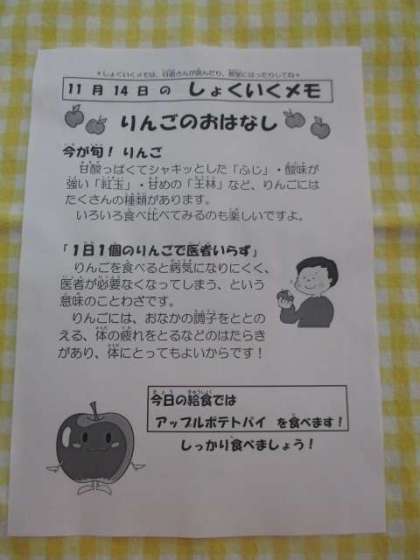 ＊しょくいくメモは、日直さんが読んだり、教室にはったりしてね＊
11月14日の しょくいくメモ
りんごのおはなし
今が旬！りんご
甘酸っぱくてシャキッとした「ふじ」・酸味が
強い「紅玉」・甘めの「王林」など、りんごには
たくさんの種類があります。
いろいろ食べ比べてみるのも楽しいですよ。
「１日１個のりんごで医者いらず」
りんごを食べると病気になりにくく、
医者が必要なくなってしまう、という
意味のことわざです。
りんごには、おなかの調子をととの
える、体の疲れをとるなどのはたらき
があり、体にとってもよいからです！
今日の給食では
アップルポテトパイ を食べます！
しっかり食べましょう！